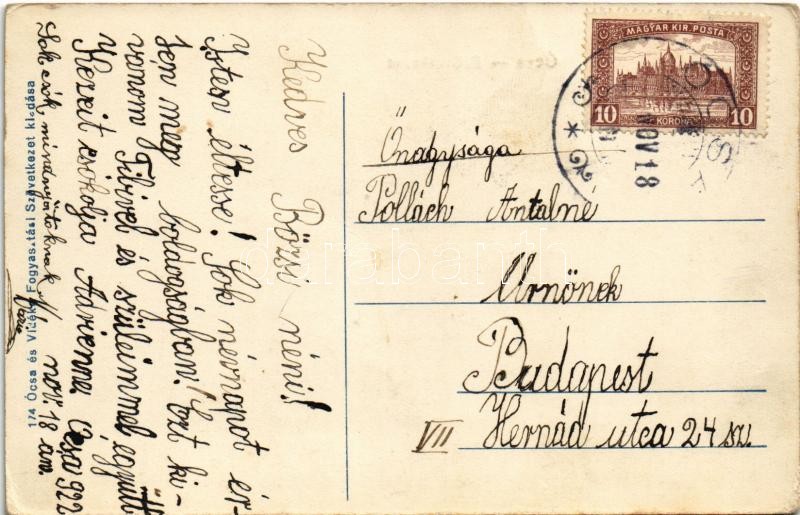 Kedves Bözsi néni!
Isten éltesse! Sok névnapot ér-
jen meg boldogságban! Ezt ki-
vánom Tibivel és szüleimmel együtt
Kezeit csókolja Adrienne. Ócsa 922
nov. 18 am.
Sok csók mindnyájatoknak
Mária
174 Ócsa és Vidéke Fogyasztási Szövetkezet kiadása
MAGYAR KIR. POSTA
10 KORONA 10
ÓCSA
NOV 18
Őnagysága
Pollách Antalné
Urnőnek
Budapest
VII Hernád utca 24 sz.
darabanth